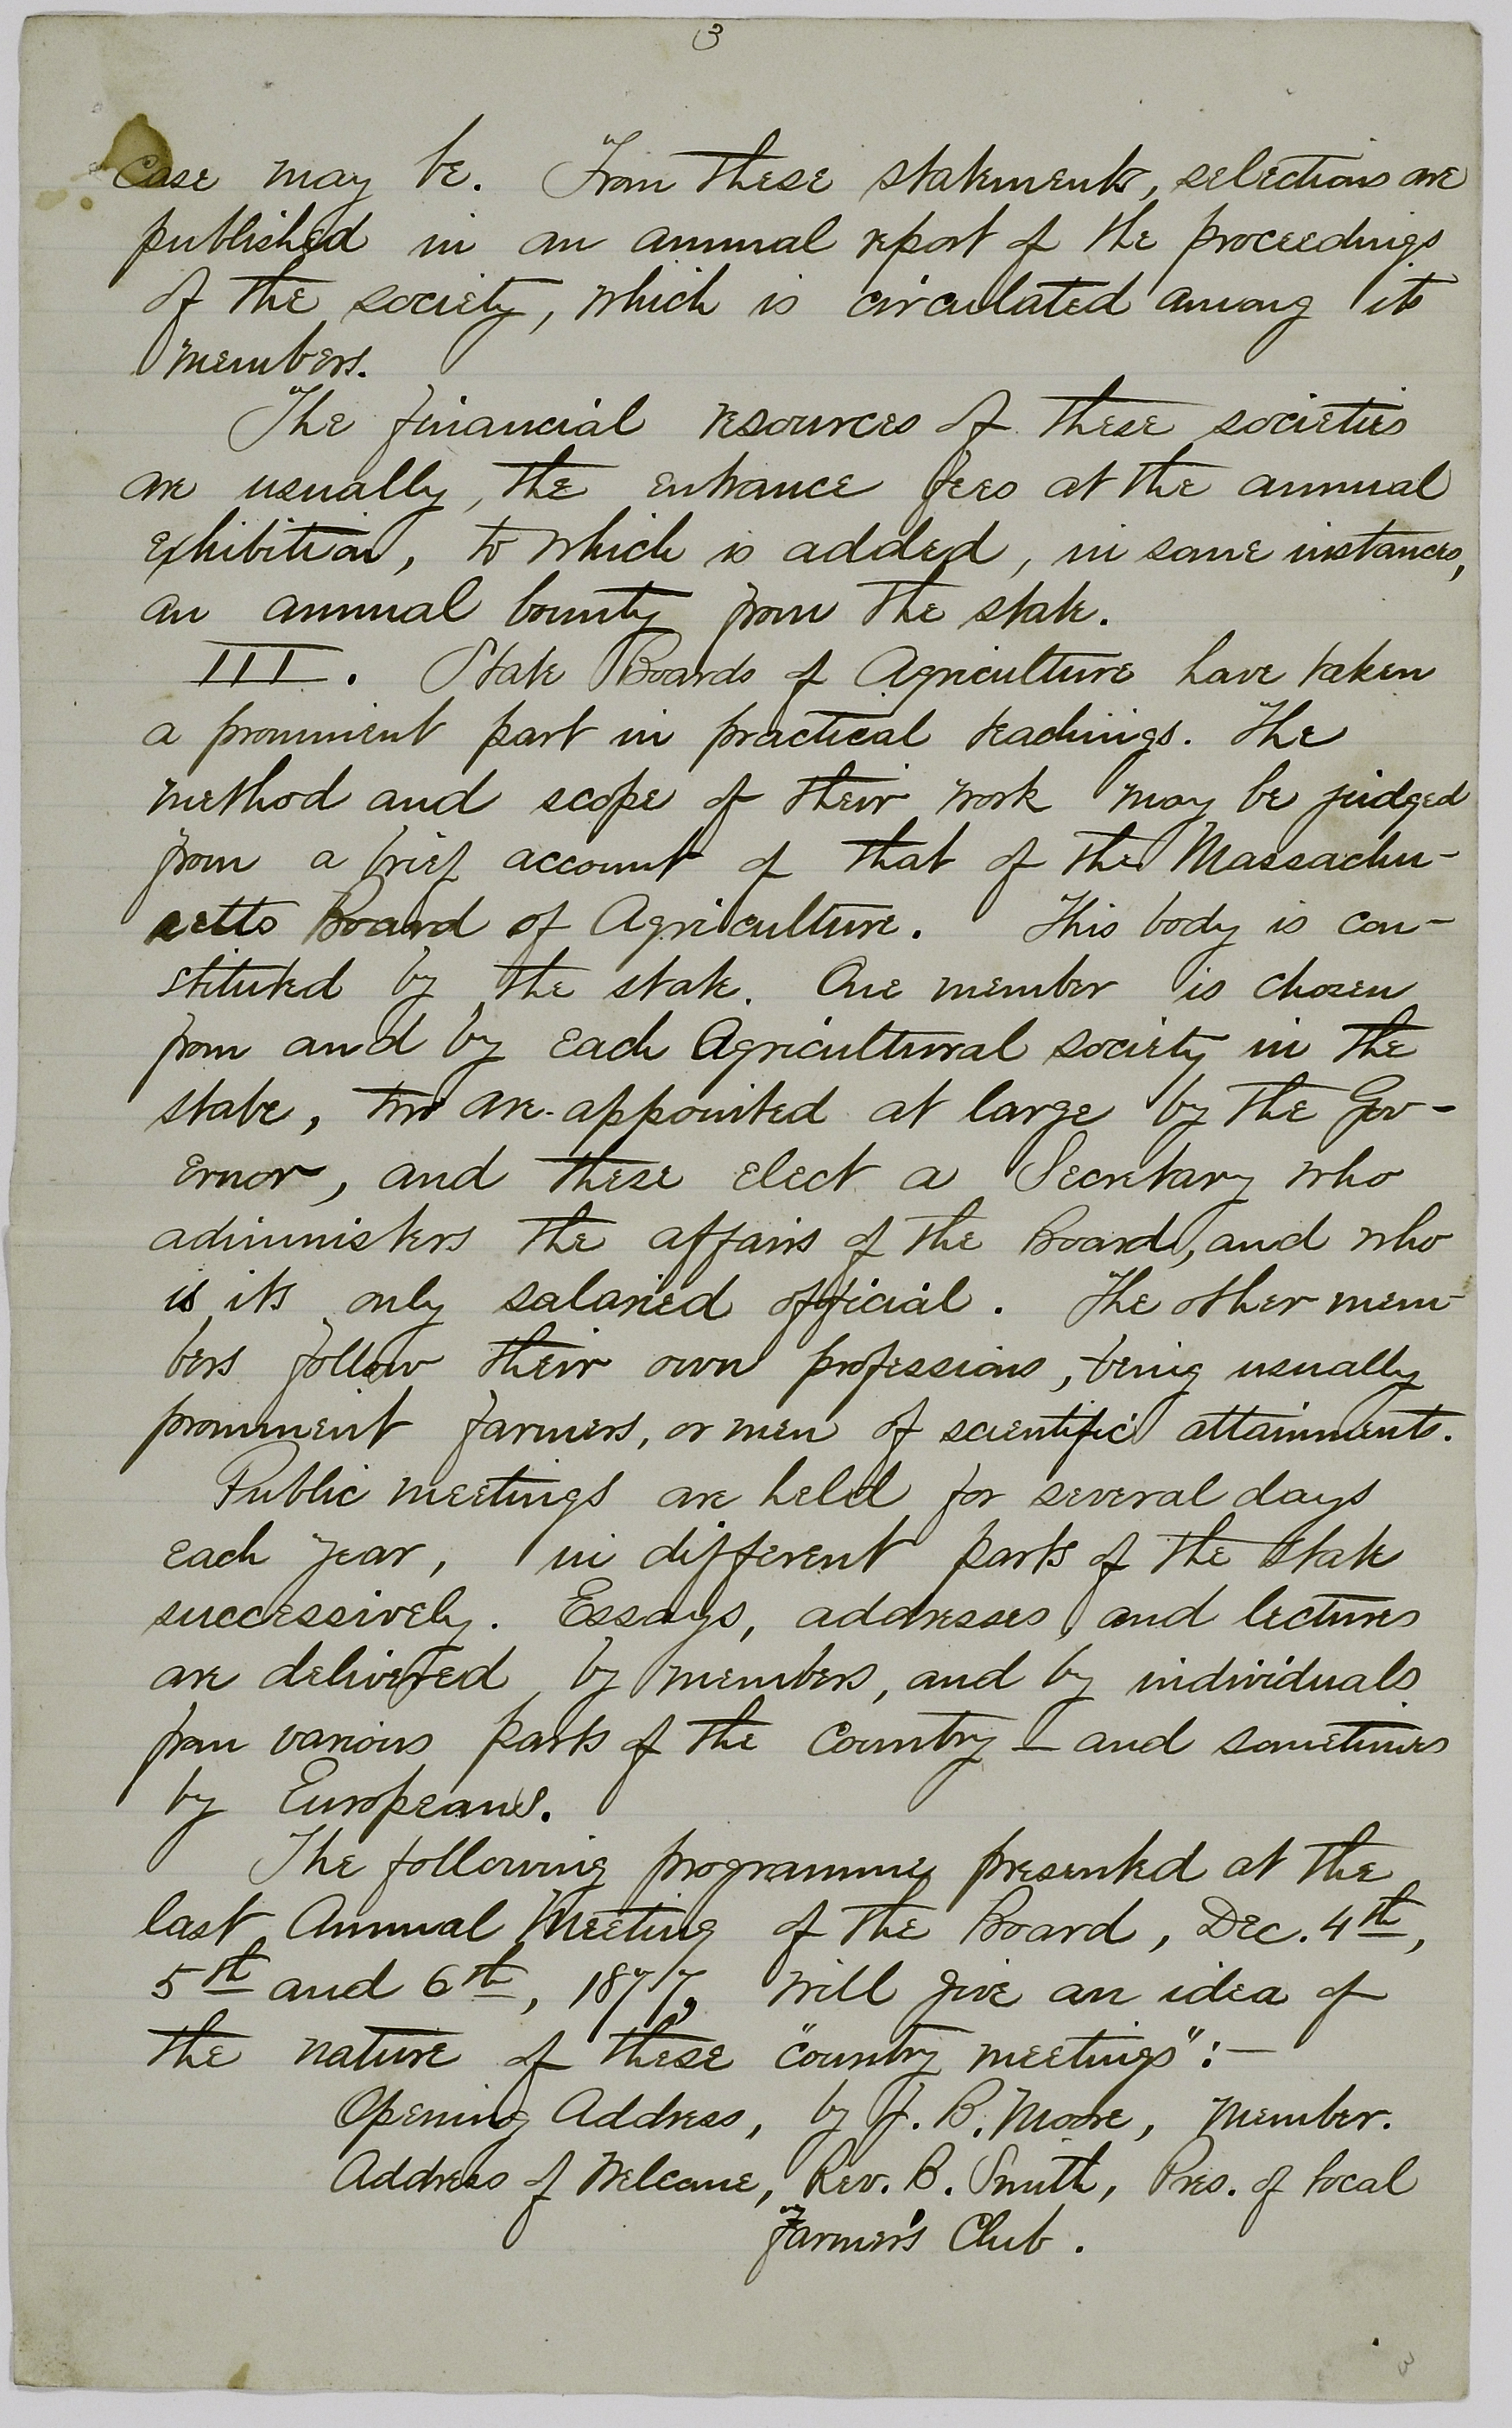 3
case may be. From these statements, selections are
published in an annual report of the proceedings
of the society, which is circulated among its
members.
The financial resources of these societies
are usually, the entrance fees at the annual
exhibition, to which is added, in some instances,
an annual bounty from the state.
III. State Boards of Agriculture have taken
a prominent part in practical teachings. The
method and scope of their work may be judged
from a brief account of that of the Massachu-
setts Board of Agriculture. This body is con-
stituted by the state. One member is chosen
from and by each Agricultural society in the
state, two are appointed at large by the Gov-
ernor, and these elect a Secretary who
administers the affairs of the Board, and who
is its only salaried official. The other mem-
bers follow their own professions, being usually
prominent farmers, or men of scientific attainments.
Public meetings are held for several days
each year, in different parts of the State
successively. Essays, addresses, and lectures
are delivered by members, and by individuals
from various parts of the country – and sometimes
by Europeans.
The following programme presented at the
last Annual Meeting of the Board, Dec. 4th,
5th and 6th, 1877, will give an idea of
the nature of these "country meetings":—
Opening Address, by J. B. Moore, Member.
Address of Welcome, Rev. B. Smith, Pres. of local
Farmer's Club.
3